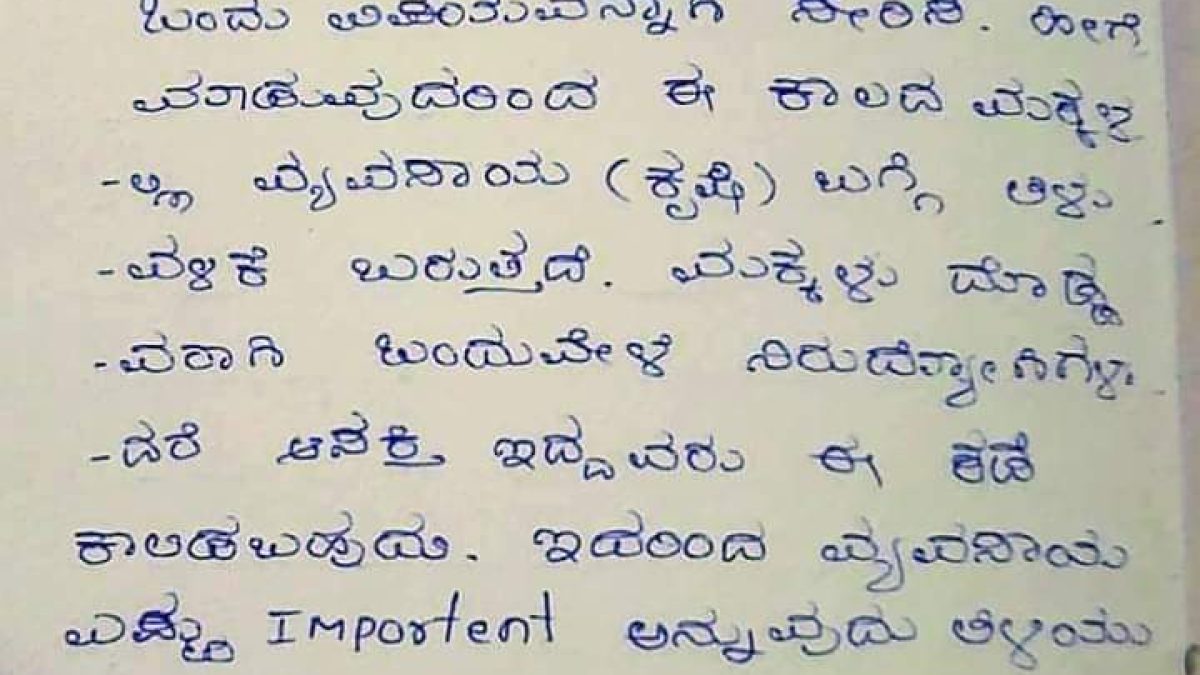 ಒಂದು ವಿಷಯವನ್ನಾಗಿ ಸೇರಿಸಿ. ಹೀಗೆ
ಮಾಡುವುದರಿಂದ ಈ ಕಾಲದ ಮಕ್ಕಳಿ
-ಗೆ ವ್ಯವಸಾಯ (ಕೃಷಿ) ಬಗ್ಗೆ ತಿಳು
-ವಳಿಕೆ ಬರುತ್ತದೆ. ಮಕ್ಕಳು ದೊಡ್ಡ
-ವರಾಗಿ ಒಂದುವೇಳೆ ನಿರುದ್ಯೋಗಿಗಳಾ
-ದರೆ ಆಸಕ್ತಿ ಇದ್ದವರು ಈ ಕಡೆ
ಕಾಲಿಡಬಹುದು. ಇದರಿಂದ ವ್ಯವಸಾಯ
ಎಷ್ಟು Importent ಅನ್ನುವುದು ತಿಳಿಯು